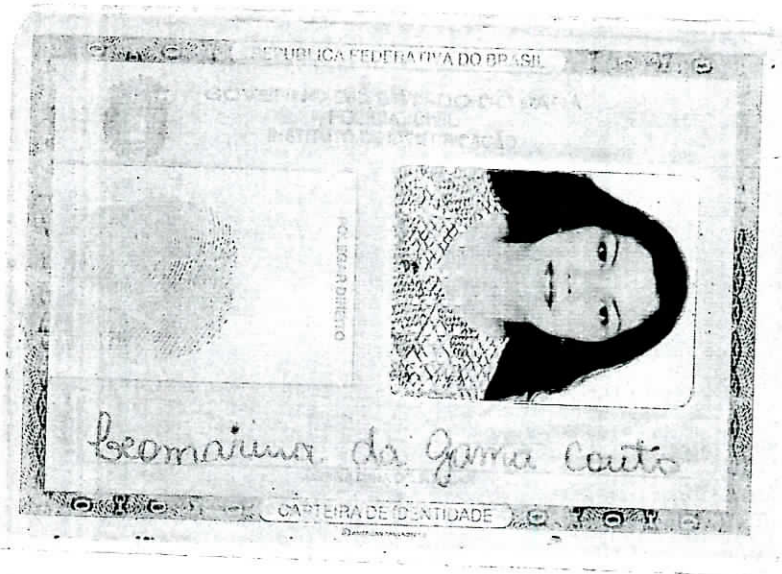 REPUBLICA FEDERATIVA DO BRASIL
GOVERNO DO ESTADO DO PARÁ
POLÍCIA CIVIL
INSTITUTO DE IDENTIFICAÇÃO
POLEGAR DIREITO
da Gama Couto
CARTEIRA DE IDENTIDADE